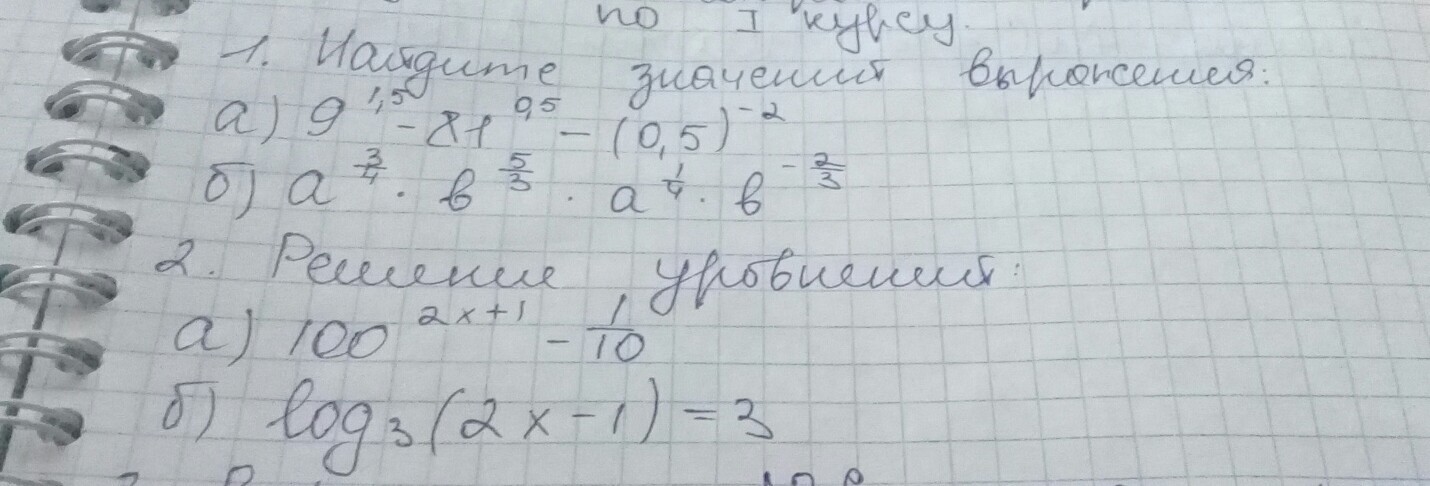 по I курсу.
1. Найдите значений выражения:
а) 9^1,5 - 81^0,5 - (0,5)^-2
б) а^3/4 · в^5/3 · а^1/4 · в^-2/3
2. Решение уровнений:
а) 100^2x+1 - 1/10
б) log₃(2x-1) = 3